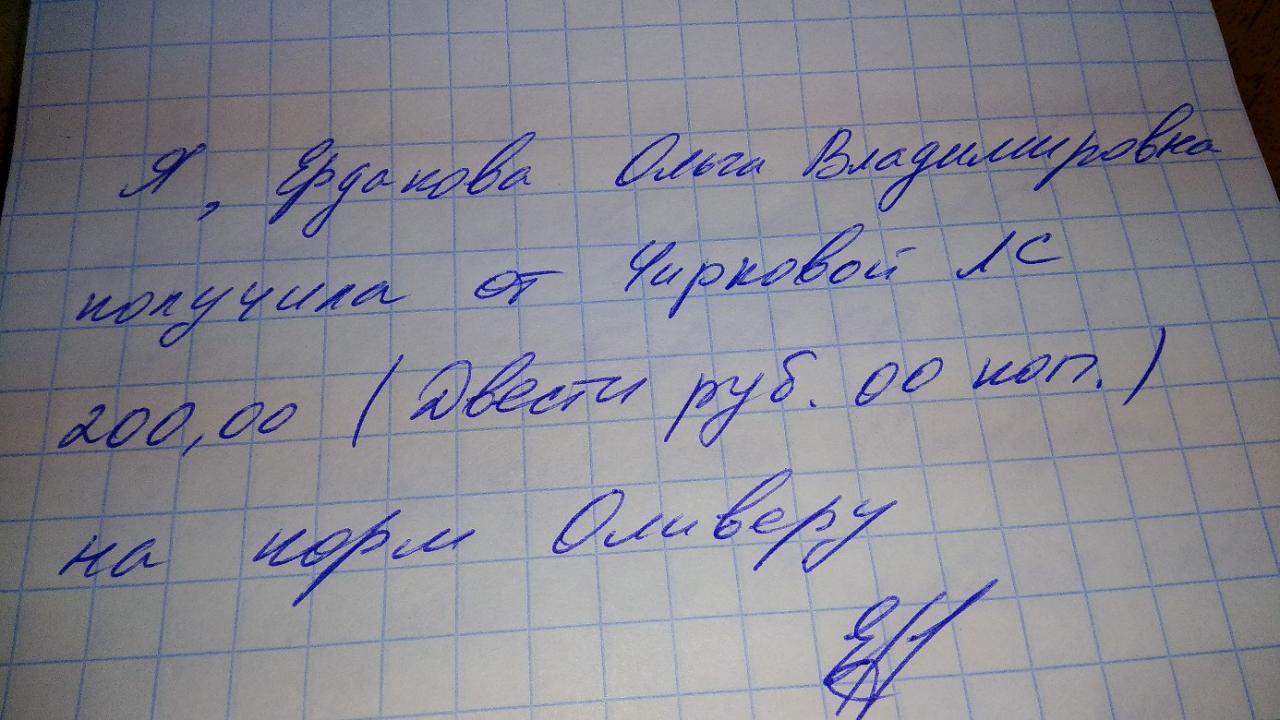 Я, Ердакова Ольга Владимировна
получила от Чирковой ЛС
200,00 (Двести руб. 00 коп.)
на корм Оливеру